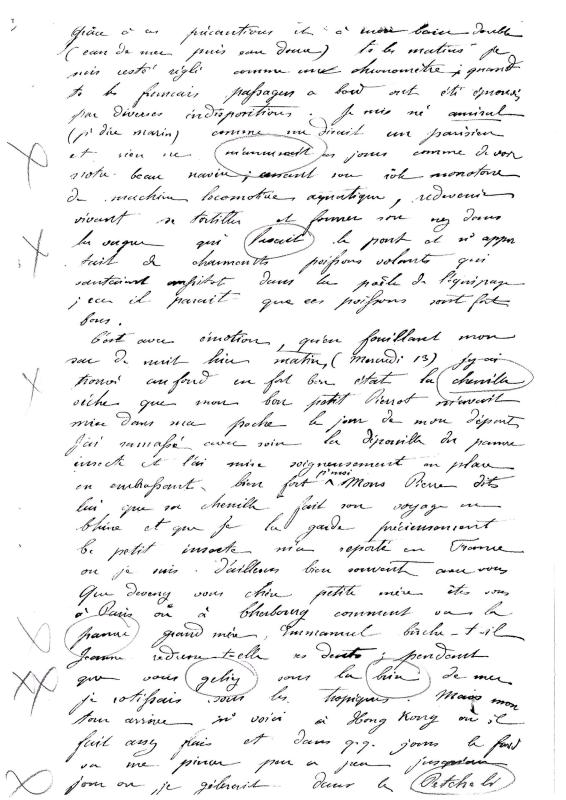 Grâce à ces précautions et à mon bain double
(eau de mer puis eau douce) ts les matins je
suis resté réglé comme un chronomètre ; quand
ts les français passagers à bord ont été éprouvés
par diverses indispositions. Je suis né amiral
(j' dire marin) comme me disait un parisien
et rien ne m'amusait ces jours comme de voir
notre beau navire, son rôle monotone
de machine locomotive aquatique, redevenir
vivant se tortiller et fourrer son nez dans
la vague qui le pont et n' appor
tait de charmants poissons volants qui
sautaient aussitôt dans la poële de l'équipage
; car il parait que ces poissons sont fort
bons.
C'est avec émotion, qu'en fouillant mon
sac de nuit hier matin, (Mercredi 13) j'y ai
trouvé au fond en fort bon état la chenille
sèche que mon bon petit Pierrot m'avait
mise dans ma poche le jour de mon départ
J'ai ramassé avec soin la dépouille du pauvre
insecte et l'ai mise soigneusement en place
en embrassant bien fort p' moi Mons Pierre dites
lui que sa chenille fait son voyage en
Chine et que je la garde précieusement
Le petit insecte m'a reporté en France
ou je suis d'ailleurs bien souvent avec vous
Que devenez vous chère petite mère êtes vous
à Paris où à Cherbourg comment va la
pauvre grand mère, Emmanuel bûche-t-il
Jeanne -t-elle ses dents ; pendant
que vous geliez sous la bise de mer
je rotissais sous les tropiques. Mais mon
tour arrive m' voici à Hong Kong où il
fait assez frais et dans q.q. jours le froid
va me pincer peu a peu jusqu'au
jour ou je gèlerait dans le Petchili